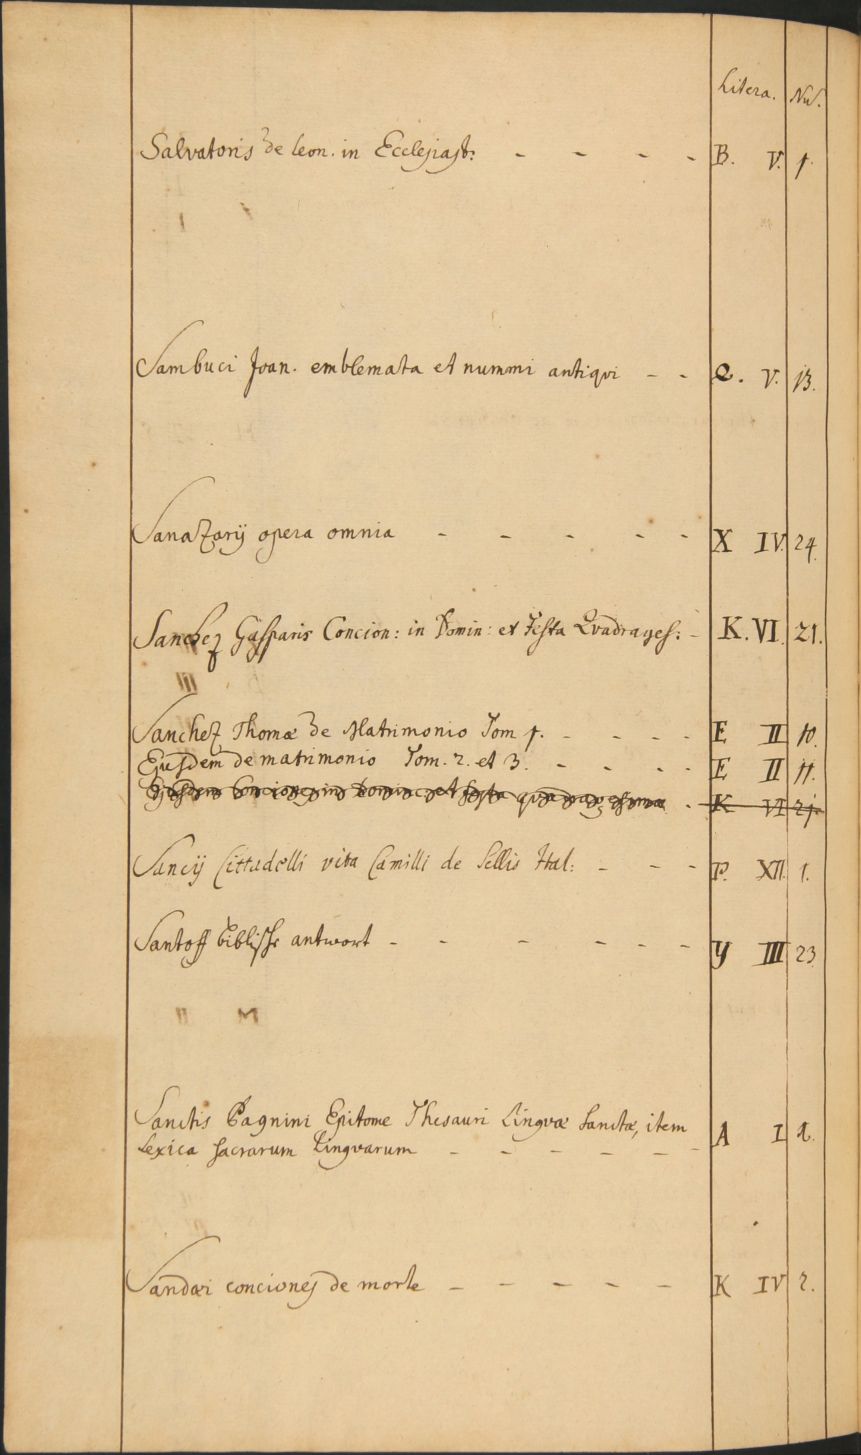 Litera. Nu.
Salvatoris de leon. in Ecclesiast: - - - - B. V. 1.
Sambuci Joan. emblemata et nummi antiqvi - - Q. V. 13.
Sanazarij opera omnia - - - - - X IV. 24.
Sanchez Gasparis Concion: in Domin: et Festa Qvadrages: - K. VI. 21.
Sanchez Thomæ de Matrimonio Tom 1. - - - - E II 10.
Ejusdem de matrimonio Tom. 2. et 3. - - - - E II 11.
Ejusdem Conciones in Domin. et festa quadragesimæ - K VI 21.
Sancij Cittadelli vita Camilli de Lellis Ital: - - - P. XII. 1.
Santoff biblische antwort - - - - - - Y III 23
Sanctis Pagnini Epitome Thesauri Lingvæ Sanctæ, item
Lexica sacrarum Lingvarum - - - - - - A I
Sandæi conciones de morte - - - - - K IV 2.